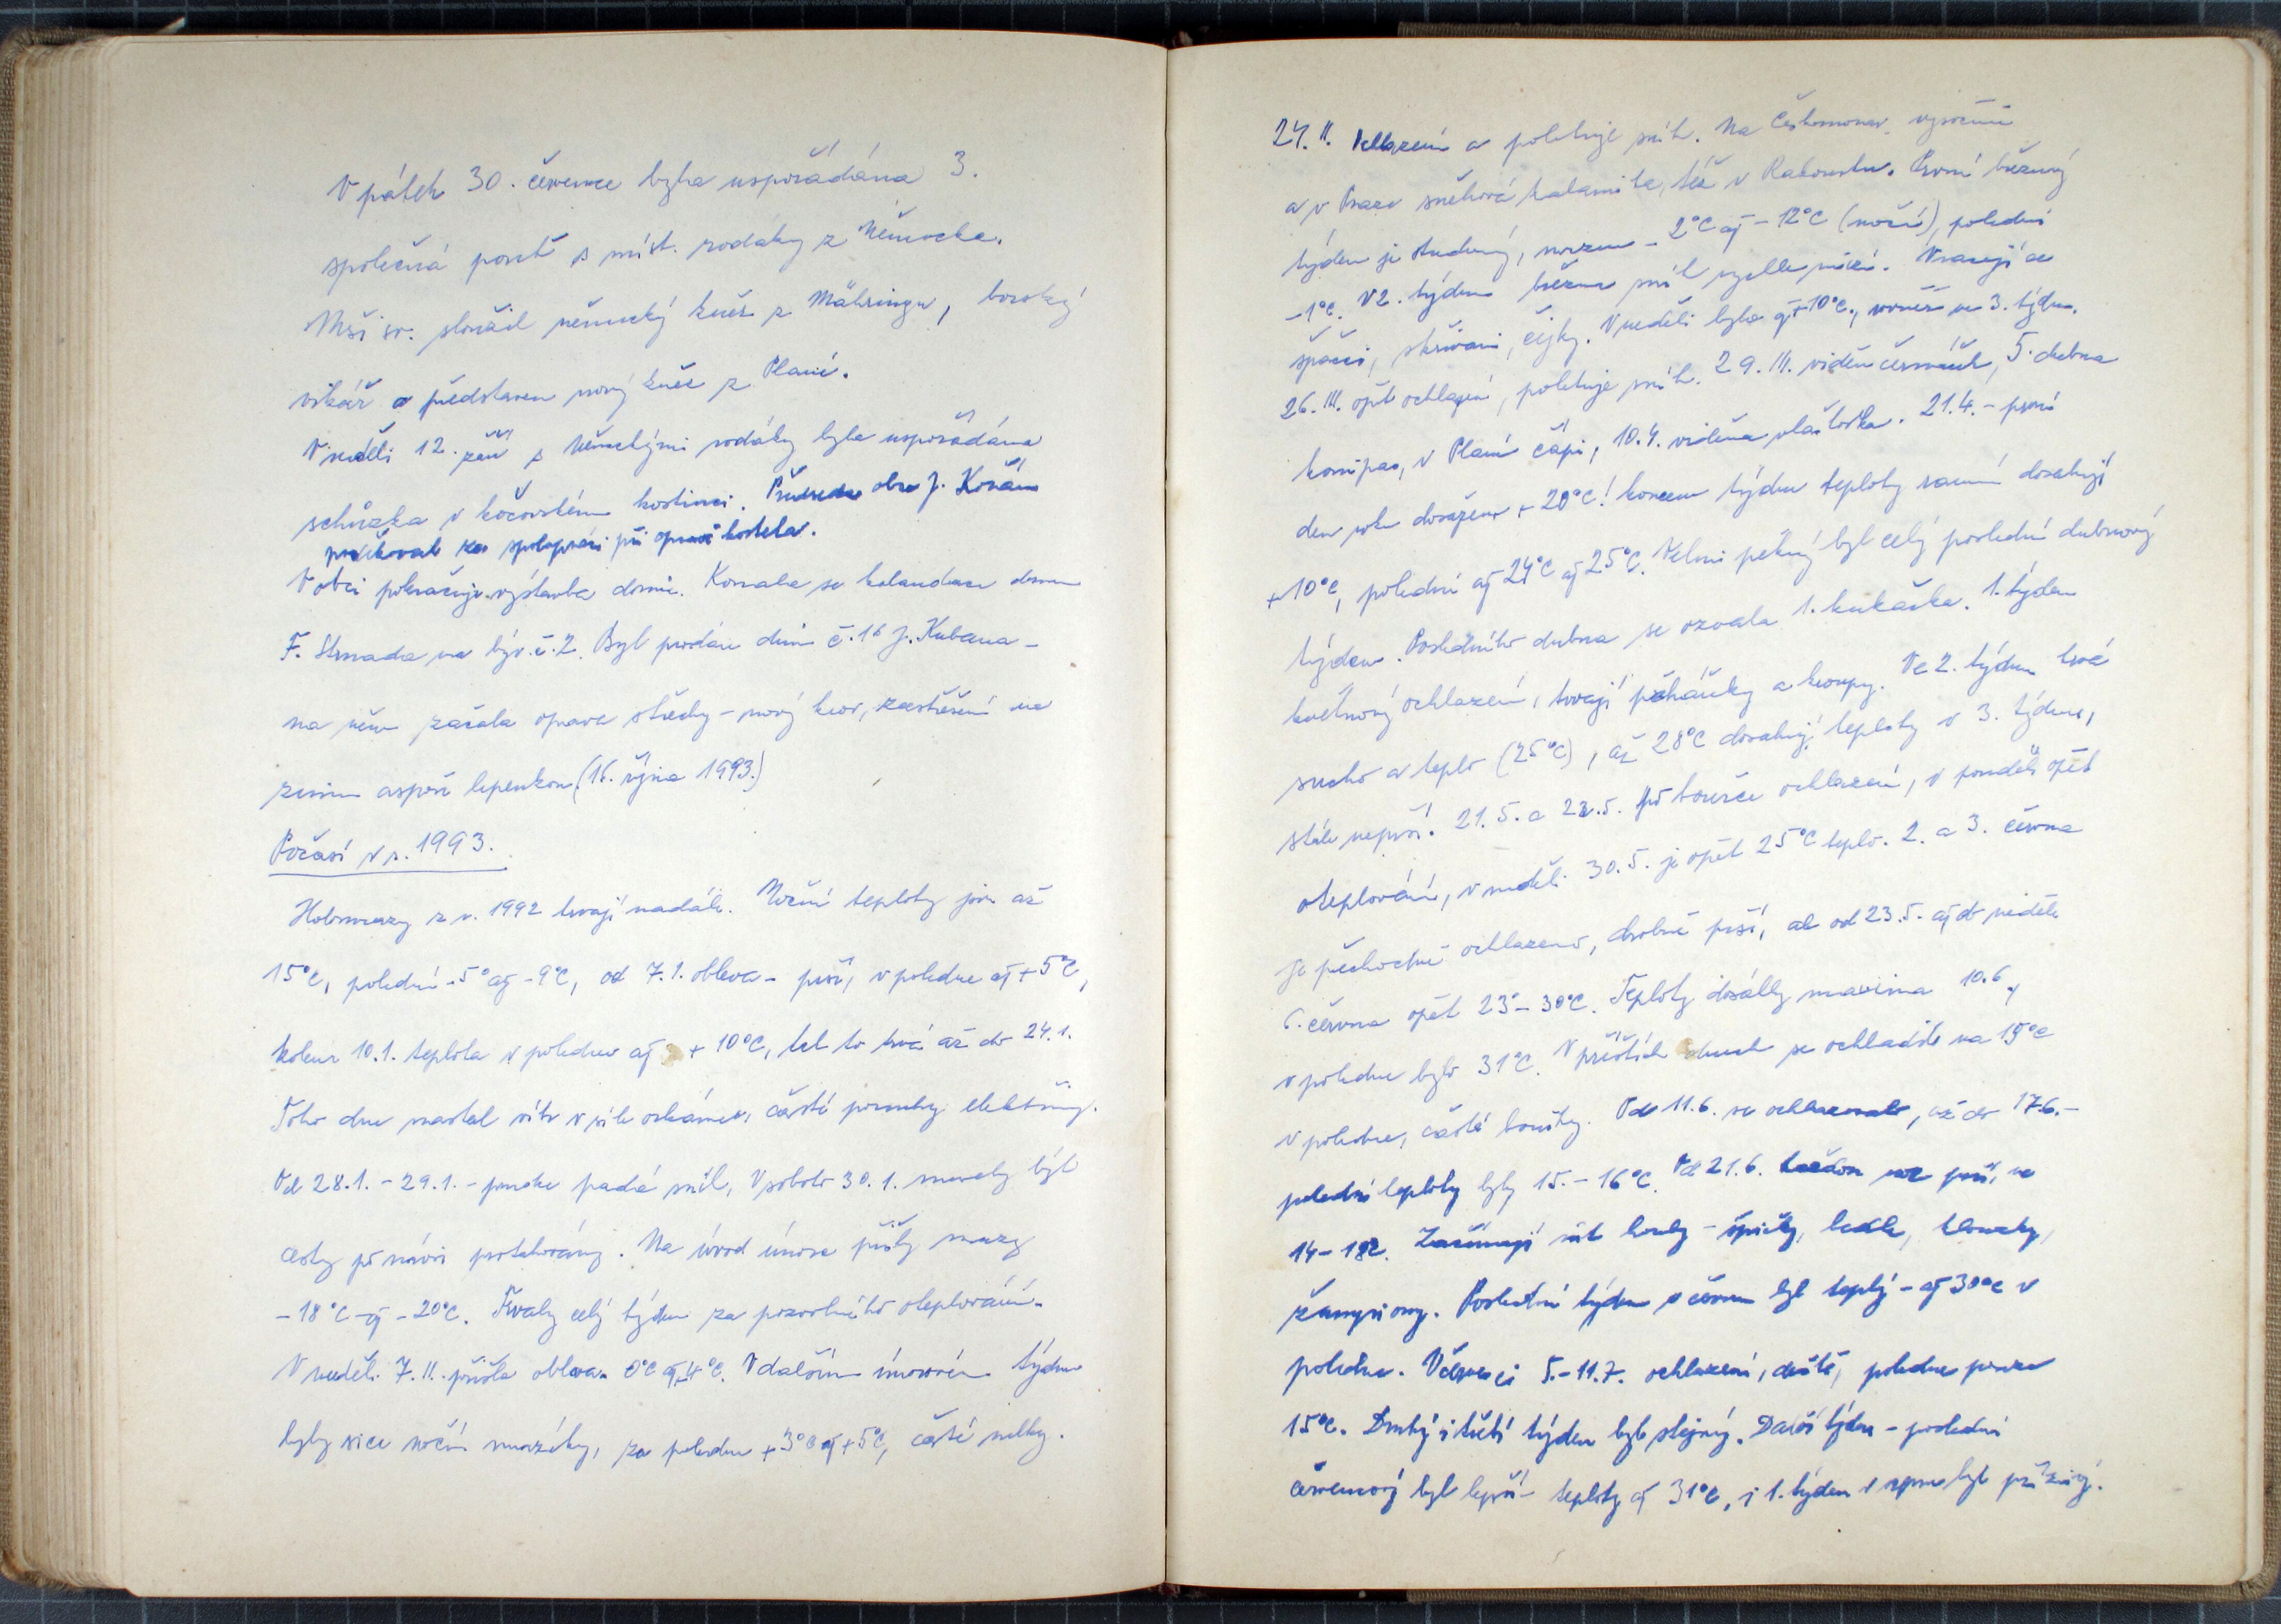 V pátek 30. července byla uspořádána 3.
společná pouť s míst. rodáky z Německa.
Mši sv. sloužil německý kněz z Mähringu, borský
vikář a představen nový kněz z Plané.
V neděli 12. září s německými rodáky byla uspořádána
schůzka v kočovském hostinci. Předseda obce J. Kován
poděkoval za spolupráci při opravě kostela.
V obci pokračuje výstavba domů. Konala se kolaudace domu
F. Strnada na býv. č. 2. Byl prodán dům č. 16 J. Kubana -
na něm začala oprava střechy - nový krov, zastřešení na
zimu aspoň lepenkou. (16. října 1993.)
Počasí v r. 1993.
Holomrazy z r. 1992 trvají nadále. Noční teploty jsou až
15°C, polední -5° až -9°C, od 7.1. obleva - prší, v poledne až +5°C,
kolem 10.1. teplota v poledne až + 10°C, tak to trvá až do 24.1.
Toho dne nastal vítr v síle orkánu, časté poruchy elektřiny.
Od 28.1. - 29.1. - prudce padá sníh, V sobotu 30.1. musely být
cesty po návsi protahovány. Na úvod února přišly mrazy
-18°C až -20°C. Trvaly celý týden za pozvolného oteplování.
V neděli 7.II. přišla obleva. 0°C až +4°C. V dalším únorovém týdnu
byly sice noční mrazíky, za poledne +3°C až +5°C, časté mlhy.
24.II. Ochlazení a poletuje sníh. Na Českomorav. vysočině
a v Praze sněhová kalamita, též v Rakousku. První březnový
týden je studený, mrzne -2°C až -12°C (noční), polední
-1°C. V 2. týdnu března sníh rychle mizí. Vracejí se
špačci, skřivani, čejky. V neděli bylo až +10°C, rovněž ve 3. týdnu.
26.III. opět ochlazení, poletuje sníh. 29.III. viděn čermáček, 5. dubna
konipas, v Plané čápi, 10.4. viděna vlaštovka. 21.4. - první
den roku dosaženo + 20°C! koncem týdne teploty ranní dosahují
+10°C, polední až 24°C až 25°C. Velmi pěkný byl celý poslední dubnový
týden. Posledního dubna se ozvala 1. kukačka. 1. týden
květnový ochlazení, trvají přeháňky a kroupy. Ve 2. týdnu trvá
sucho a teplo (25°C), až 28°C dosahují teploty v 3. týdnu,
stále neprší. 21.5. a 22.5. po bouřce ochlazení, v pondělí opět
oteplování, v neděli 30.5. je opět 25°C teplo. 2. a 3. června
je přechodně ochlazeno, drobně prší, ale od 23.5. až do neděle
6. června opět 23° - 30°C. Teploty dosáhly maxima 10.6.,
v poledne bylo 31°C. V příštích dnech se ochladilo na 19°C
v poledne, časté bouřky. Od 11.6. se ochlazovalo, až do 17.6. -
polední teploty byly 15. - 16°C. Od 21.6. každou noc prší, ve
14-18°C. Začínají růst houby - špičky, bedle, klouzky,
žampiony. Poslední týden v červnu byl teplý - až 30°C v
poledne. V červenci 5.-11.7. ochlazení, deště, poledne pouze
15°C. Druhý i třetí týden byl stejný. Další týden - poslední
červencový byl lepší - teploty až 31°C, i 1. týden v srpnu byl příznivý.